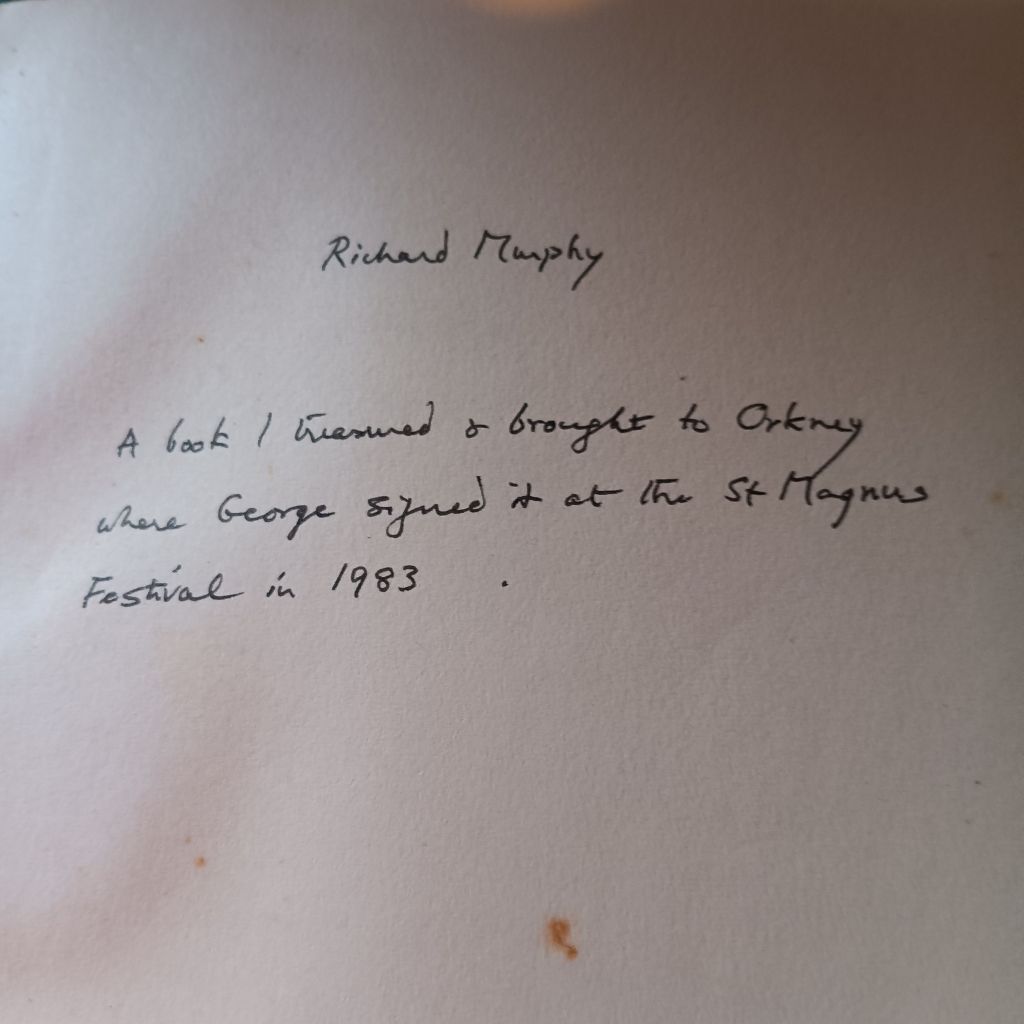 Richard Murphy
A book I treasured & brought to Orkney
where George signed it at the St Magnus
Festival in 1983 .